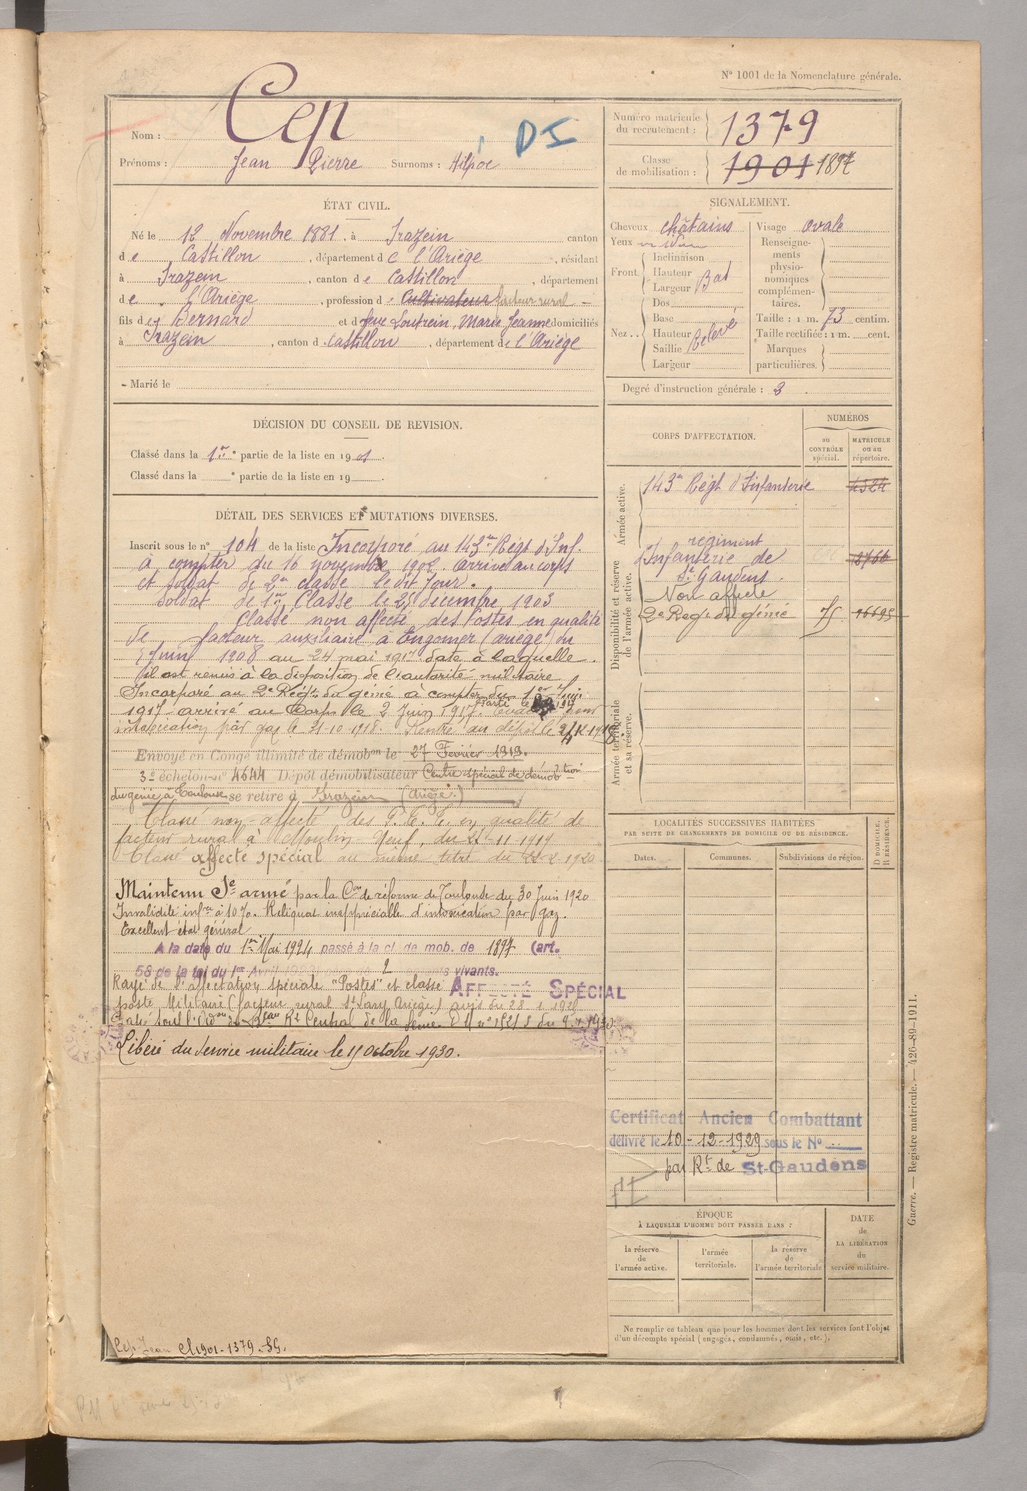 N° 1001 de la Nomenclature générale.
Nom : Cep
DI
Prénoms : Jean Pierre Surnoms :
Numéro matricule du recrutement : 1379
Classe de mobilisation : 1901 1897
ÉTAT CIVIL.
Né le 12 Novembre 1881, à Irazein canton
de Castillon, département de l'Ariège, résidant
à Irazein, canton de Castillon, département
de l'Ariège, profession de Cultivateur facteur rural
fils de Bernard et de feue Marie Jeanne domiciliés
à Irazein, canton de Castillon, département de l'Ariège
Marié le
SIGNALEMENT.
Cheveux châtains Visage ovale
Yeux
Front. Inclinaison
Hauteur Bas
Largeur
Nez.. Dos
Base
Hauteur Relevé
Saillie
Largeur
Renseignements physionomiques complémentaires.
Taille : 1 m. 73 centim.
Taille rectifiée : 1 m. cent.
Marques particulières.
Degré d'instruction générale : 3
DÉCISION DU CONSEIL DE REVISION.
Classé dans la 1re partie de la liste en 1901.
Classé dans la ° partie de la liste en 19
DÉTAIL DES SERVICES ET MUTATIONS DIVERSES.
Inscrit sous le n° 104 de la liste Incorporé au 143me Régt d'Inf.
à compter du 16 novembre 1902 arrivé au corps
et soldat de 2e classe le dit jour.
Soldat de 1re Classe le 25 décembre 1903
Classé non affecté des Postes en qualité
de facteur auxiliaire à Engomer (Ariège) du
Juin 1908 au 24 mai 1917 date à laquelle
il est remis à la disposition de l'autorité militaire
Incorporé au 2e Régt du génie à compter du 1er Juin
1917 arrivé au Corps le 2 Juin 1917. Parti le
intoxication par gaz le 31-10-1918. Rentré au dépôt le
Envoyé en Congé illimité de démobon le 27 Février 1919.
3e échelon n° 4644 Dépôt démobilisateur Centre spécial de démobtion
du génie à Toulouse se retire à Irazein (Ariège)
Classé non affecté des P.T.T. en qualité de
facteur rural à Moulin Neuf, du 21-11-1919
Classé affecté spécial au même titre du
Maintenu Sce armé par la Con de réforme de Toulouse du 30 Juin 1920
Invalidité infre à 10%. Reliquat inappréciable d'intoxication par gaz.
Excellent état général
A la date du 1er Mai 1924 passé à la cl. de mob. de 1897 (art.
58 de la loi du 1er Avril 2 vivants.
Rayé de l'affectation spéciale "Postes" et classé AFFECTÉ SPÉCIAL
poste Militaire (facteur rural St Lary Ariège) avis du 28.1.1928
Libéré du service militaire le 15 Octobre 1930.
Cep Jean cl 1901-1379-SG.
CORPS D'AFFECTATION.
NUMÉROS
au CONTRÔLE spécial.
MATRICULE ou au répertoire.
Armée active.
143e Régt d'Infanterie
Disponibilité et réserve de l'armée active.
régiment
Infanterie de
St Gaudens.
Non affecté
2e Régt du génie
Armée territoriale et sa réserve.
LOCALITÉS SUCCESSIVES HABITÉES
PAR SUITE DE CHANGEMENTS DE DOMICILE OU DE RÉSIDENCE.
Dates. Communes. Subdivisions de région.
D DOMICILE. R RÉSIDENCE.
Certificat Ancien Combattant
délivré le 10-12-1929 sous le N°
par Rt de St-Gaudens
ÉPOQUE
À LAQUELLE L'HOMME DOIT PASSER DANS :
la réserve de l'armée active.
l'armée territoriale.
la réserve de l'armée territoriale
DATE de LA LIBÉRATION du service militaire.
Ne remplir ce tableau que pour les hommes dont les services font l'objet
d'un décompte spécial (engagés, condamnés, omis, etc.).
Guerre. — Registre matricule. — 426-89-1911.